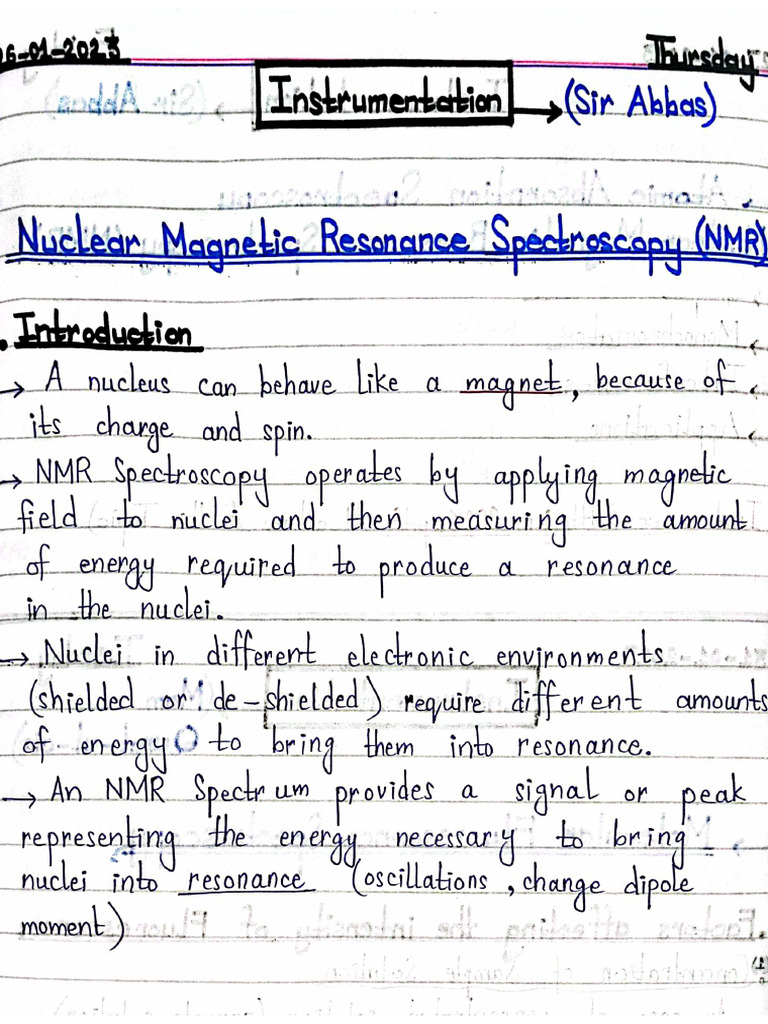 6-01-2023 Thursday
Instrumentation → (Sir Abbas)
Nuclear Magnetic Resonance Spectroscopy (NMR)
. Introduction
→ A nucleus can behave like a magnet, because of
its charge and spin.
→ NMR Spectroscopy operates by applying magnetic
field to nuclei and then measuring the amount
of energy required to produce a resonance
in the nuclei.
→ Nuclei in different electronic environments
(shielded or de-shielded) require different amounts
of energy to bring them into resonance.
→ An NMR Spectrum provides a signal or peak
representing the energy necessary to bring
nuclei into resonance (oscillations, change dipole
moment)